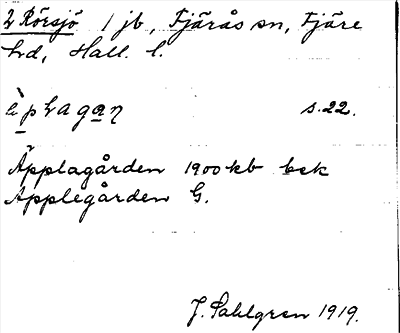 2 Rörsjö 1 jb, Fjärås sn, Fjäre
hd, Hall. l.
s. 22.
Äpplagården 1900 kb bsk
Applegården G.
J. Sahlgren 1919.